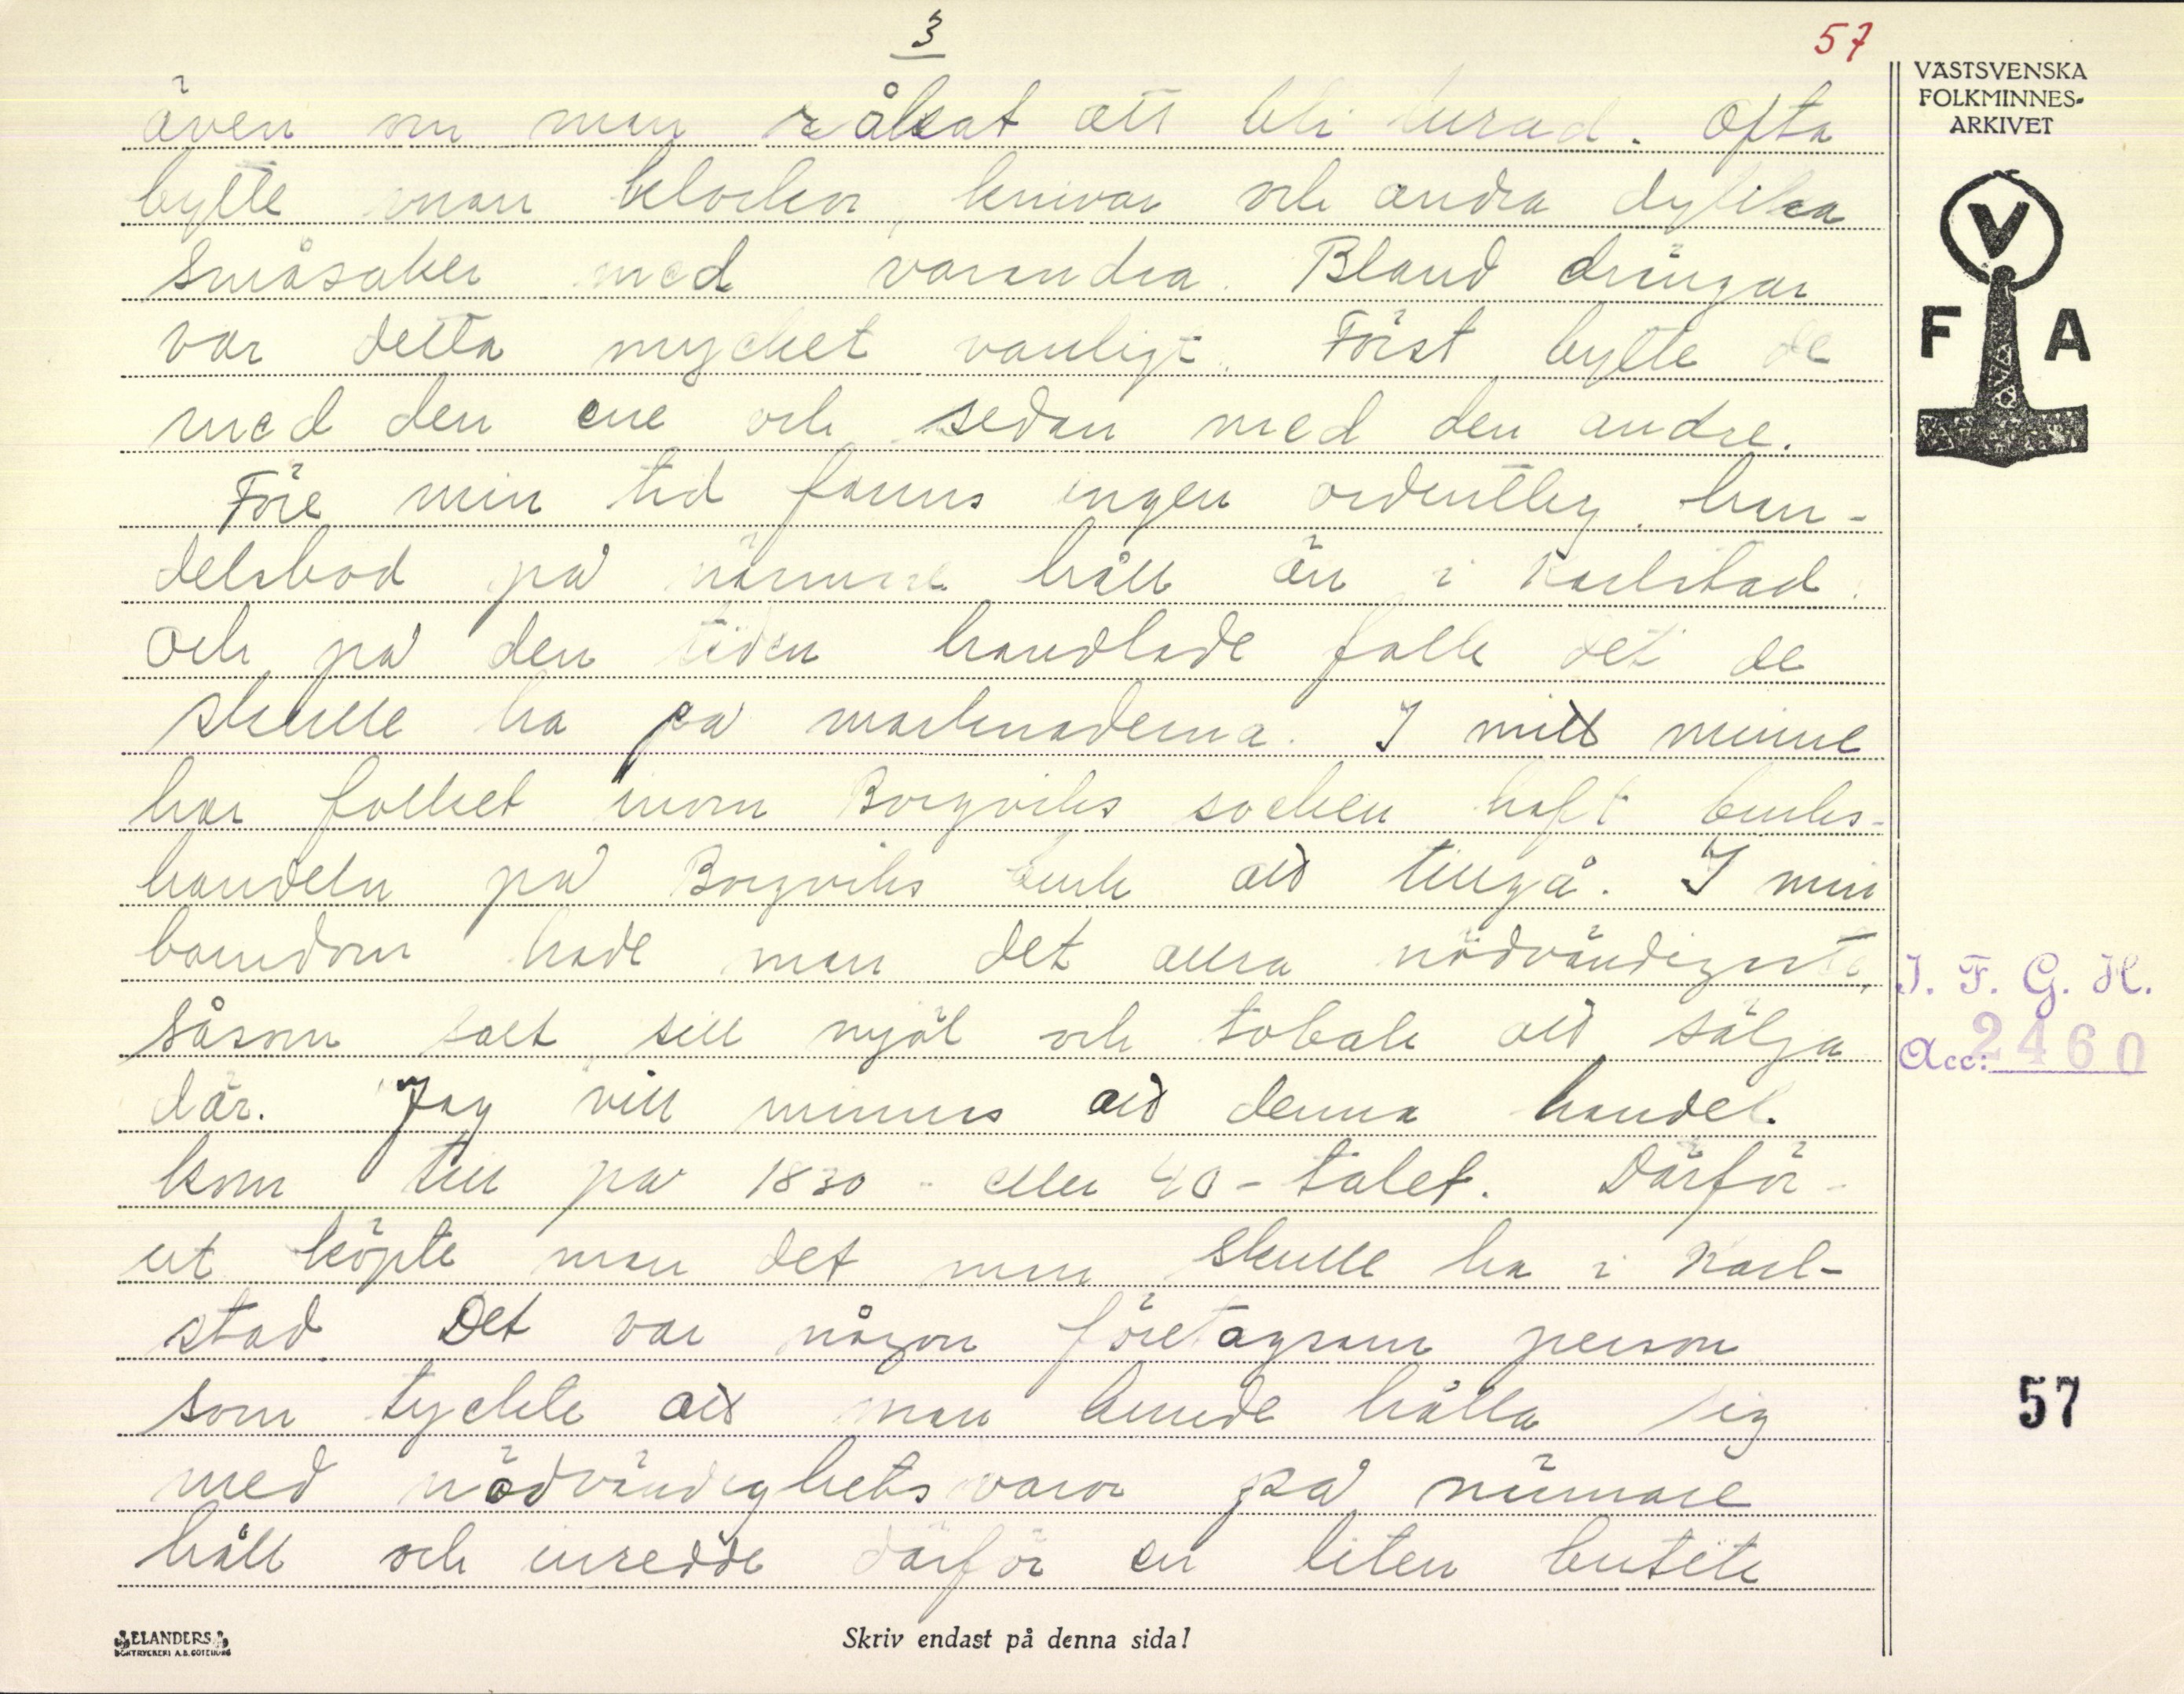 3
57
VÄSTSVENSKA
FOLKMINNES-
ARKIVET
V
F A
även om man råkat att bli lurad. Ofta
bytte man klockor, knivar och andra dylika
småsaker med varandra. Bland drängar
var detta mycket vanligt. Först bytte de
med den ene och sedan med den andre.
Före min tid fanns ingen ordentlig han-
delsbod på närmare håll än i Karlstad.
Och på den tiden handlade folk det de
skulle ha på marknaderna. I mitt minne
har folket inom Borgviks socken haft bruks-
handeln på Borgviks bruk att tillgå. I min
barndom hade man det allra nödvändigaste,
såsom salt, sill mjöl och tobak att sälja
där. Jag vill minnas att denna handel
kom till på 1830- eller 40-talet. Därför-
ut köpte man det man skulle ha i Karl-
stad. Det var någon företagsam person
som tyckte att man kunde hålla sig
med nödvändighetsvaror på närmare
håll och inredde därför en liten butik
I. F. G. H.
Acc: 2460
57
ELANDERS
BOKTRYCKERI A.B. GÖTEBORG
Skriv endast på denna sida!